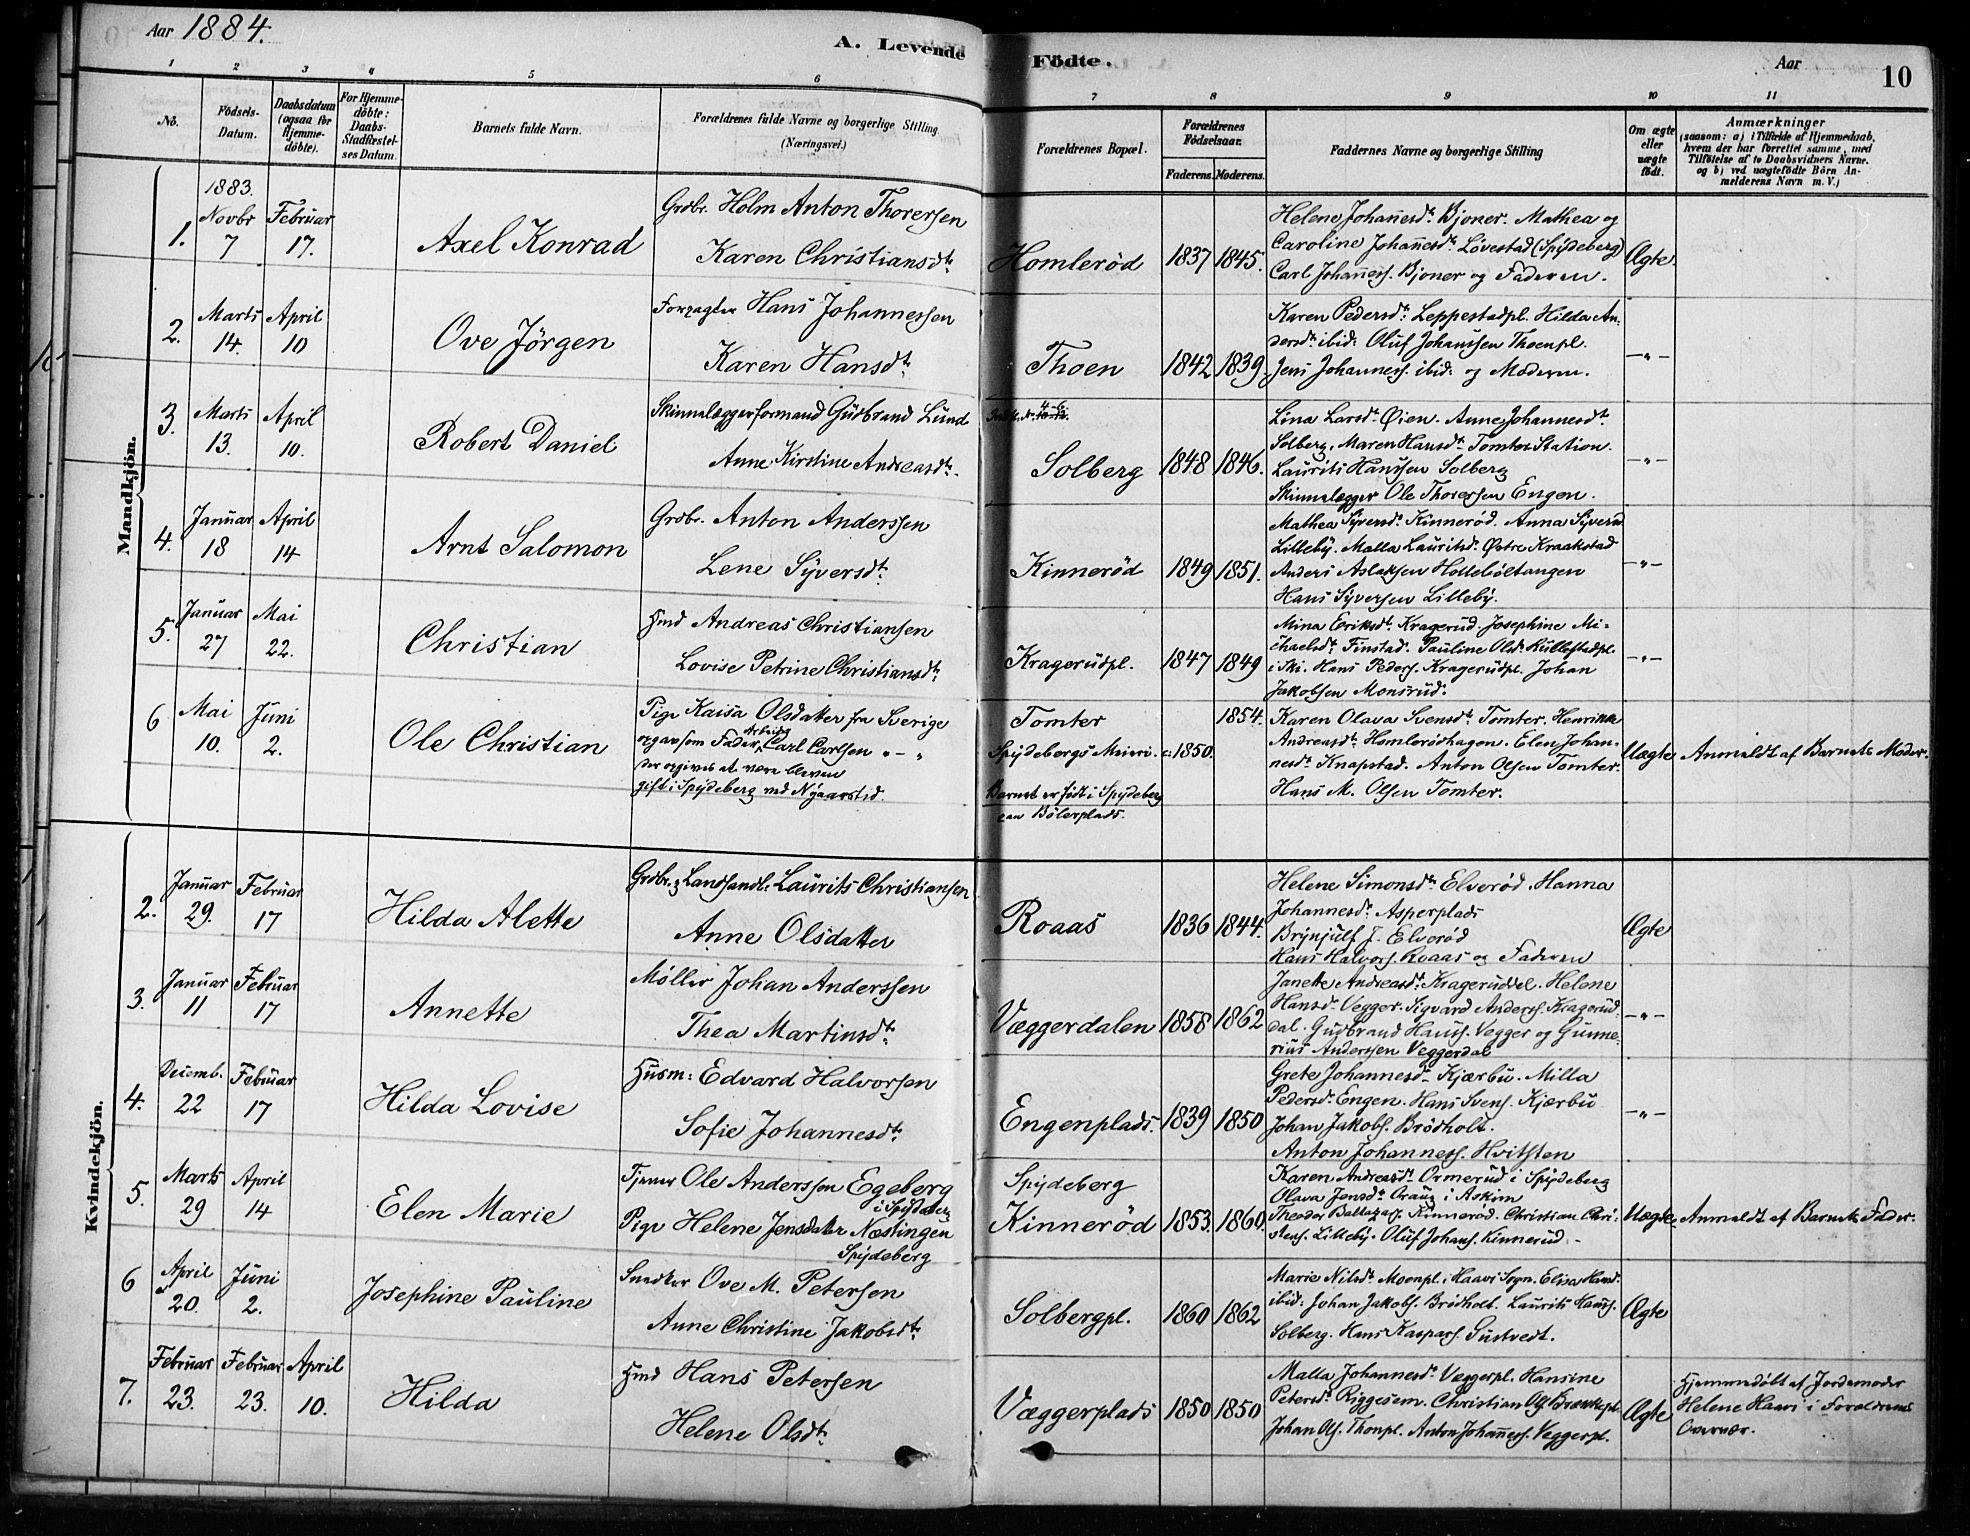 Aar 1884.
A. Levende Födte.
Aar
10
1 2 3 4 5 6 7 8 9 10 11
No.
Födsels-Datum.
Daabsdatum (ogsaa for Hjemme-döbte).
For Hjemme-döbte: Daabs-Stadfæstel-ses Datum.
Barnets fulde Navn.
Forældrenes fulde Navne og borgerlige Stilling. (Næringsvei.)
Forældrenes Bopæl.
Forældrenes Födselsaar.
Faderens. Moderens.
Faddernes Navne og borgerlige Stilling
Om ægte eller uægte födt.
Anmærkninger
(saasom: a) i Tilfælde af Hjemmedaab, hvem der har forrettet samme, med Tilföielse af to Daabsvidners Navne. og b) ved uægtefödte Börn An-melderens Navn m. V.)
Mandkjön.
1. 1883. Novbr 7 Februar 17. Axel Konrad
Grdbr. Holm Anton Thorersen
Karen Christiansdtr
Homleröd 1837 1845.
Helene Johannesdtr Bjoner. Mathea og
Caroline Johannesdtr Løvestad (Spydeberg)
Carl Johanness. Bjoner og Faderen.
Ægte.
2. Marts 14. April 10 Ove Jörgen
Forpagter Hans Johannessen
Karen Hansdtr
Thoen 1842 1839.
Karen Pedersdtr Leppestadpl. Hilda An-
dersdtr ibid: Oluf Johanssen Thoenpl.
Jens Johanness. ibid: og Moderen.
-"-
3. Marts 13. April 10. Robert Daniel
Skinnelæggerformand Gudbrand Lund
Anne Kirstine Andreasdtr
Solberg 1848 1846.
Lina Larsdtr Øien. Anne Johannesdtr
Solberg. Maren Hansdtr Tomter Station.
Laurits Hanssen Solberg
Skinnelægger Ole Thorersen Engen.
-"-
4. Januar 18 April 14 Arnt Salomon
Grdbr. Anton Anderssen
Lene Syversdtr
Kinneröd 1849 1851.
Mathea Syversdtr Kinneröd. Anna Syversd
Lilleby. Malla Lauritsdtr Østre Kraakstad
Anders Aslaksen Holleböltangen
Hans Syversen Lilleby.
-"-
5. Januar 27 Mai 22. Christian
Hmd Andreas Christiansen
Lovise Petrine Christiansdtr
Kragerudpl. 1847 1849
Mina Eriksdtr Kragerud. Josephine Mi-
chaelsdtr Finstad. Pauline Olsdtr Kullestadpl.
i Ski. Hans Peders. Kragerudpl. Johan
Jakobsen Monsrud.
-"-
6 Mai 10. Juni 2. Ole Christian
Pige Kaisa Olsdatter fra Sverige
opgav som Fader, Arbeider Carl Carlsen " - "
der opgives at være bleven
gift i Spydeberg ved Nyaarstid.
Tomter 1854.
Spydebergs Meieri. c: 1850.
Barnet er født i Spydeberg
paa Bölerplads.
Karen Olava Svensdtr Tomter. Henrikke
Andreasdtr Homlerödhagen. Elen Johan-
nesdtr Knapstad. Anton Olsen Tomter.
Hans M. Olsen Tomter.
Uægte
Anmeldt af Barnets Moder.
Kvindekjön.
2. Januar 29. Februar 17 Hilda Alette
Grdbr. & Landhandl. Laurits Christiansen
Anne Olsdatter
Roaas 1836 1844.
Helene Simonsdtr Elveröd. Hanna
Johannesdtr Asperplads
Brynjulf J. Elveröd
Hans Halvors. Roaas og Faderen
Ægte
3. Januar 11 Februar 17 Annette
Møller Johan Anderssen
Thea Martinsdtr
Væggerdalen 1858 1862
Janette Andreasdtr Krageruddel. Helene
Hansdtr Vegger. Sigvard Anderss. Kragerud-
dal. Gudbrand Hanss. Vegger og Gunne-
rius Anderssen Veggerdal
-"-
4. Decemb. 22 Februar 17 Hilda Lovise
Husm: Edvard Halvorsen
Sofie Johannesdtr
Engenplads. 1839 1850
Grete Johannesdtr Kjærbu. Milla
Pedersdtr Engen. Hans Svens. Kjærbu
Johan Jakobs. Brödholt.
Anton Johanness. Hvitsten
-"-
5. Marts 29 April 14 Elen Marie
Tjener Ole Anderssen Egeberg
i Spydeberg
Pige Helene Jensdatter Næstingen
Spydeberg
Spydeberg
Kinneröd 1853. 1860.
Karen Andreasdtr Ormerud i Spydeberg
Olava Jensdtr Graug i Askim
Theodor Baltazars. Kinneröd. Christian Chri-
stens. Lilleby. Oluf Johans. Kinnerud.
Uægte.
Anmeldt af Barnets Fader.
6 April 20. Juni 2. Josephine Pauline
Snedker Ove M. Petersen
Anne Christine Jakobsdtr
Solbergpl. 1860 1862
Marie Nilsdtr Moenpl. i Haavi Sogn. Elisa Hansd.
ibid: Johan Jakobs. Brödholt. Laurits Hanss.
Solberg. Hans Kaspars. Sustvedt.
Ægte
7. Februar 23. Februar 23. April 10. Hilda
Hmd Hans Petersen
Helene Olsdtr
Væggerplads 1850 1850
Malla Johannesdtr Væggerpl. Hansine
Petersdtr Riggesem. Christian Ols. Brækkepl.
Johan Ols. Thonpl. Anton Johanness. Veggerpl.
Ægte
Hjemmedöbt af Jordemoder
Helene Haavi i Forældrenes
Overvær.